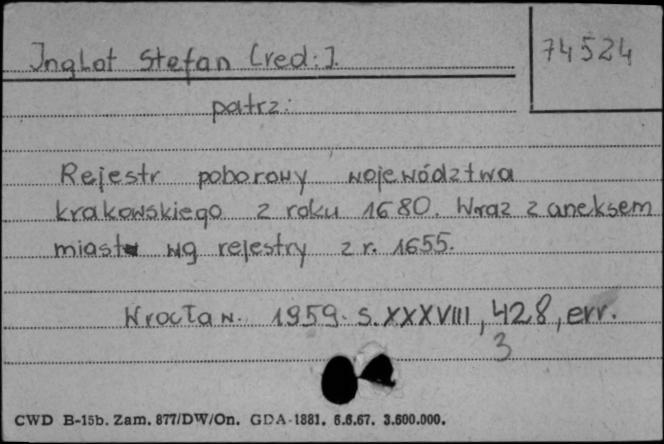 Inglot Stefan [red.:].
74524
patrz:
Rejestr poborowy województwa
krakowskiego z roku 1680. Wraz z aneksem
miast wg rejestry z r. 1655.
Wrocław. 1959. s. XXXVIII, 428, err.
3
CWD B-15b. Zam. 877/DW/On. GDA-1881. 6.6.67. 3.600.000.